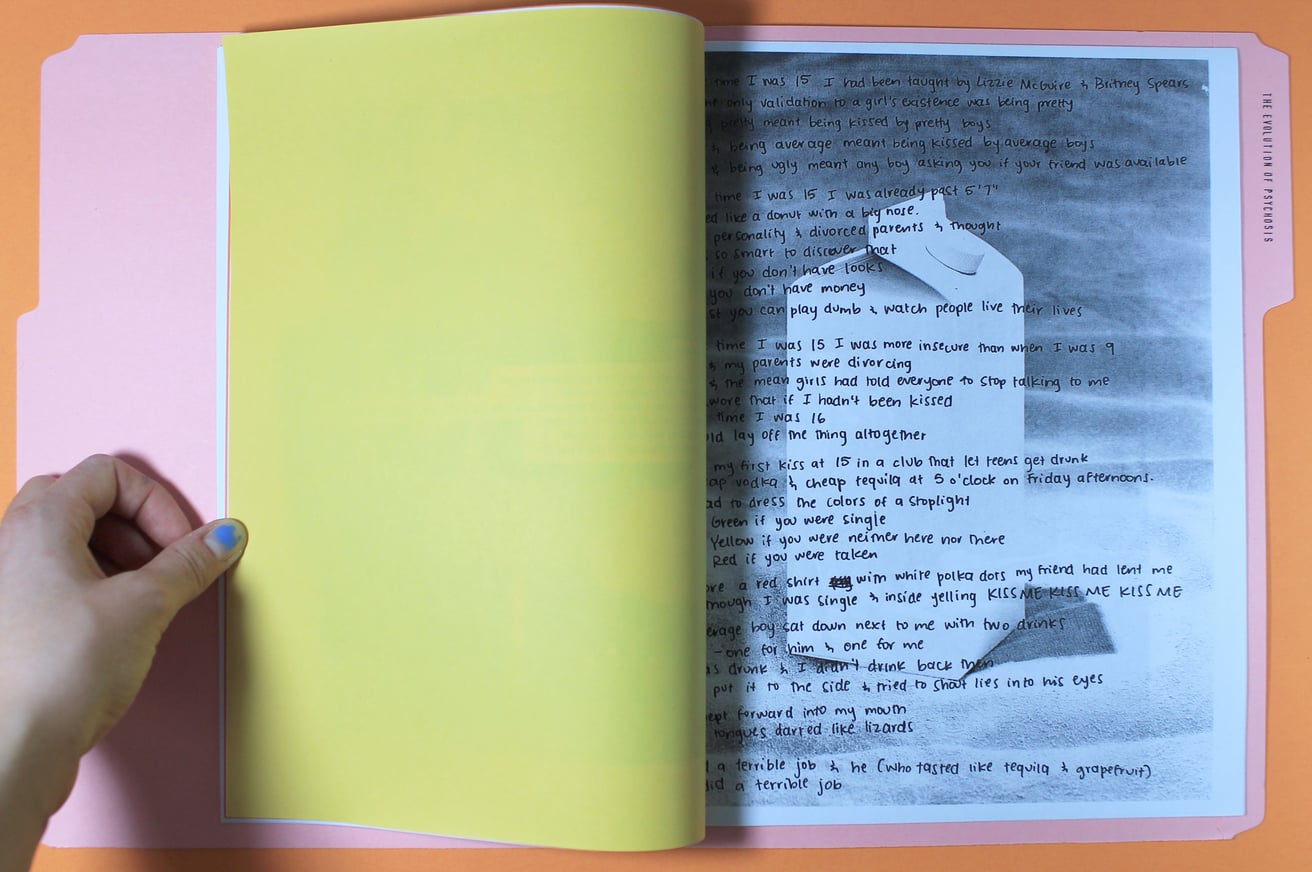 time I was 15 I had been taught by Lizzie McGuire & Britney Spears
only validation to a girl's existence was being pretty
pretty meant being kissed by pretty boys
& being average meant being kissed by average boys
& being ugly meant any boy asking you if your friend was available
time I was 15 I was already past 5'7"
like a donut with a big nose.
personality & divorced parents & thought
so smart to discover that
if you don't have looks
you don't have money
you can play dumb & watch people live their lives
time I was 15 I was more insecure than when I was 9
& my parents were divorcing
& the mean girls had told everyone to stop talking to me
that if I hadn't been kissed
time I was 16
lay off the thing altogether
my first kiss at 15 in a club that let teens get drunk
vodka & cheap tequila at 5 o'clock on Friday afternoons.
to dress the colors of a stoplight
Green if you were single
Yellow if you were neither here nor there
Red if you were taken
a red shirt with white polka dots my friend had lent me
though I was single & inside yelling KISS ME KISS ME KISS ME
boy sat down next to me with two drinks
- one for him & one for me
drunk & I didn't drink back then
put it to the side & tried to shout lies into his eyes
forward into my mouth
tongues darted like lizards
a terrible job & he (who tasted like tequila & grapefruit)
a terrible job
THE EVOLUTION OF PSYCHOSIS